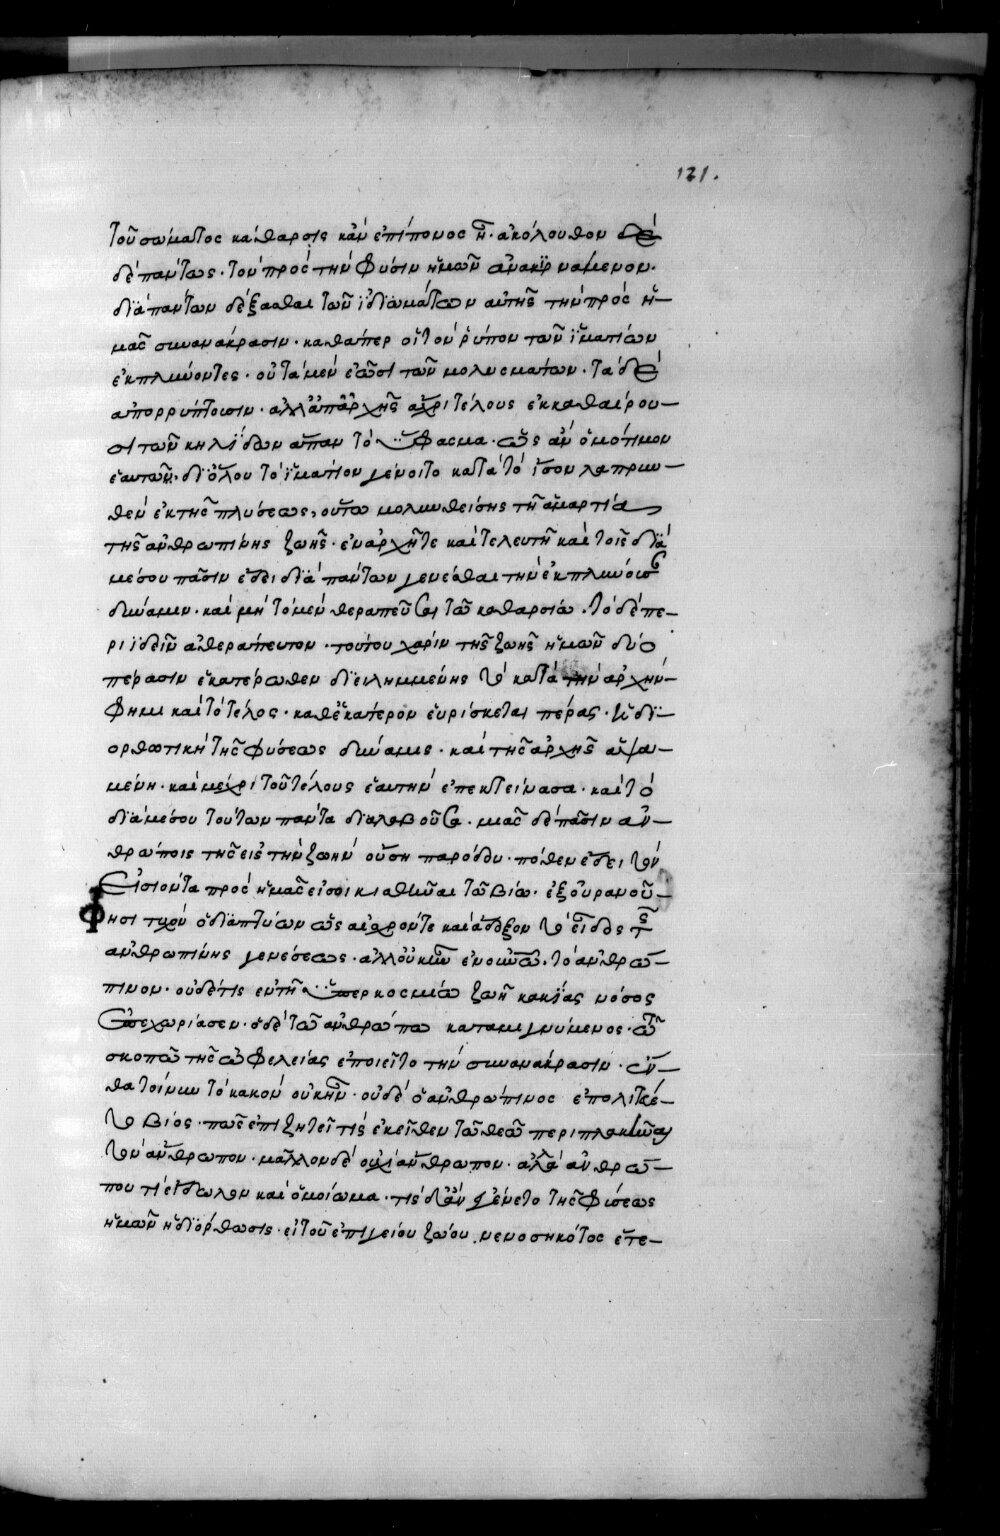 121.
τοῦ σώματος κάθαρσις κἂν ἐπίπονος ἦ. ἀκόλουθον
δὲ πάντως. τὸν πρὸς τὴν φύσιν ἡμῶν ἀνακϊρνάμενον.
διὰ πάντων δέξασθαι τῶν ἰδιωμάτων αὐτῆς τὴν πρὸς ἡ-
μᾶς συνανάκρασιν. καθάπερ οἱ τὸν ῥύπον τῶν ἱματίων
ἐκπλύνοντες. οὐ τὰ μὲν ἐῶσι τῶν μολυσμάτων. τὰ δὲ
ἀπορρύπτουσιν. ἀλλ' ἀπ' ἀρχῆς ἄχρι τέλους ἐκκαθαίρου-
σι τῶν κηλίδων ἅπαν τὸ ὕφασμα. ὡς ἂν ὁμότιμον
ἑαυτῶ. δι' ὅλου τὸ ἱμάτιον γένοιτο κατὰ τὸ ἴσον λαπρυν-
θὲν ἐκ τῆς πλύσεως, οὕτω μολυνθείσης τῇ ἁμαρτία
τῆς ἀνθρωπίνης ζωῆς. ἐν ἀρχῇ τε καὶ τελευτῇ καὶ τοῖς διὰ
μέσου πᾶσιν ἔδει διὰ πάντων γενέσθαι τὴν ἐκπλύνουσαν
δύναμιν. καὶ μὴ τὸ μὲν θεραπεῦσαι τῶ καθαρσίω. τὸ δὲ πε-
ριϊδεῖν ἀθεράπευτον. τούτου χάριν τῆς ζωῆς ἡμῶν δύο
πέρασιν ἑκατέρωθεν διειλημμένης τὸ κατὰ τὴν ἀρχήν
φημι καὶ τὸ τέλος. καθ' ἑκάτερον εὑρίσκεται πέρας. ἡ δι-
ορθωτικὴ τῆς φύσεως δύναμις. καὶ τῆς ἀρχῆς ἁψα-
μένη. καὶ μέχρι τοῦ τέλους ἑαυτὴν ἐπεκτείνασα. καὶ τὸ
διὰ μέσου τούτων πάντα διαλαβοῦσα. μιᾶς δὲ πᾶσιν ἀν-
θρώποις τῆς εἰς τὴν ζωὴν οὔση παρόδου. πόθεν ἔδει τὸν
εἰσιόντα πρὸς ἡμᾶς εἰσοικισθῆναι τῶ βίω. ἐξ οὐρανοῦ
φησὶ τυχὸν ὁ διαπτύων ὡς αἰσχρόν τε καὶ ἄδοξον τὸ εἶδος τῆς
ἀνθρωπίνης γενέσεως. ἀλλ' οὐκ ἦν ἐν οὐνῶ. τὸ ἀνθρώ-
πινον. οὐδέ τις ἐν τῇ ὑπερκοσμίω ζωῇ κακίας νόσος
ἐπεχωρίασεν. ὁ δὲ τῶ ἀνθρώπω καταμιγνύμενος. τῶ
σκοπῶ τῆς ὠφελείας ἐποιεῖτο τὴν συνανάκρασιν. ἔν-
θα τοίνυν τὸ κακὸν οὐκ ἦν. οὐδὲ ὁ ἀνθρώπινος ἐπολιτεύε-
το βίος. πῶς ἐπιζητεῖ τις ἐκεῖθεν τῶ θεῶ περιπλακῆναι
τὸν ἄνθρωπον. μᾶλλον δὲ οὐχὶ ἄνθρωπον. ἀλλὰ ἀνθρώ-
που τι εἴδωλον καὶ ὁμοίωμα. τίς δ' ἂν ἐγένετο τῆς φύσεως
ἡμῶν ἡ διόρθωσις. εἰ τοῦ ἐπιγείου ζώου νενοσηκότος ἕτε-